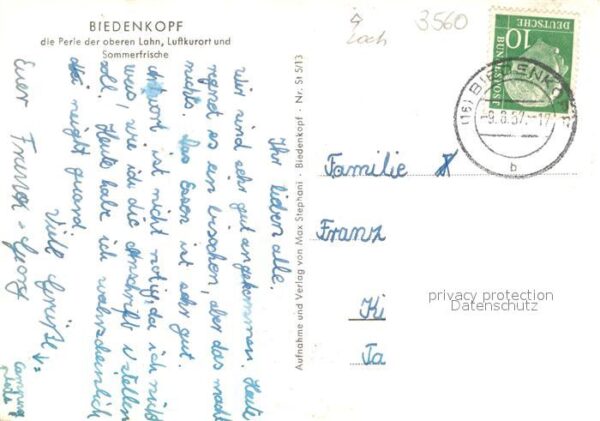 BIEDENKOPF
die Perle der oberen Lahn, Luftkurort und
Sommerfrische
3560
Ihr lieben alle.
Wir sind sehr gut angekommen. Heute
regnet es ein bisschen, aber das macht
nichts. Das Essen ist sehr gut.
Antwort ist nicht nötig, da ich nicht
weis, wie ich die Anschrift
soll. Heute habe ich wahrscheinlich
Viele Grüße
Euer Franz + Georg
Aufnahme und Verlag von Max Stephani · Biedenkopf · Nr. St 5/13
DEUTSCHE
BUNDESPOST
10
(16) BIEDENKO
-9.8.57.-17
b
Familie
Franz
Ki
Ta
privacy protection
Datenschutz